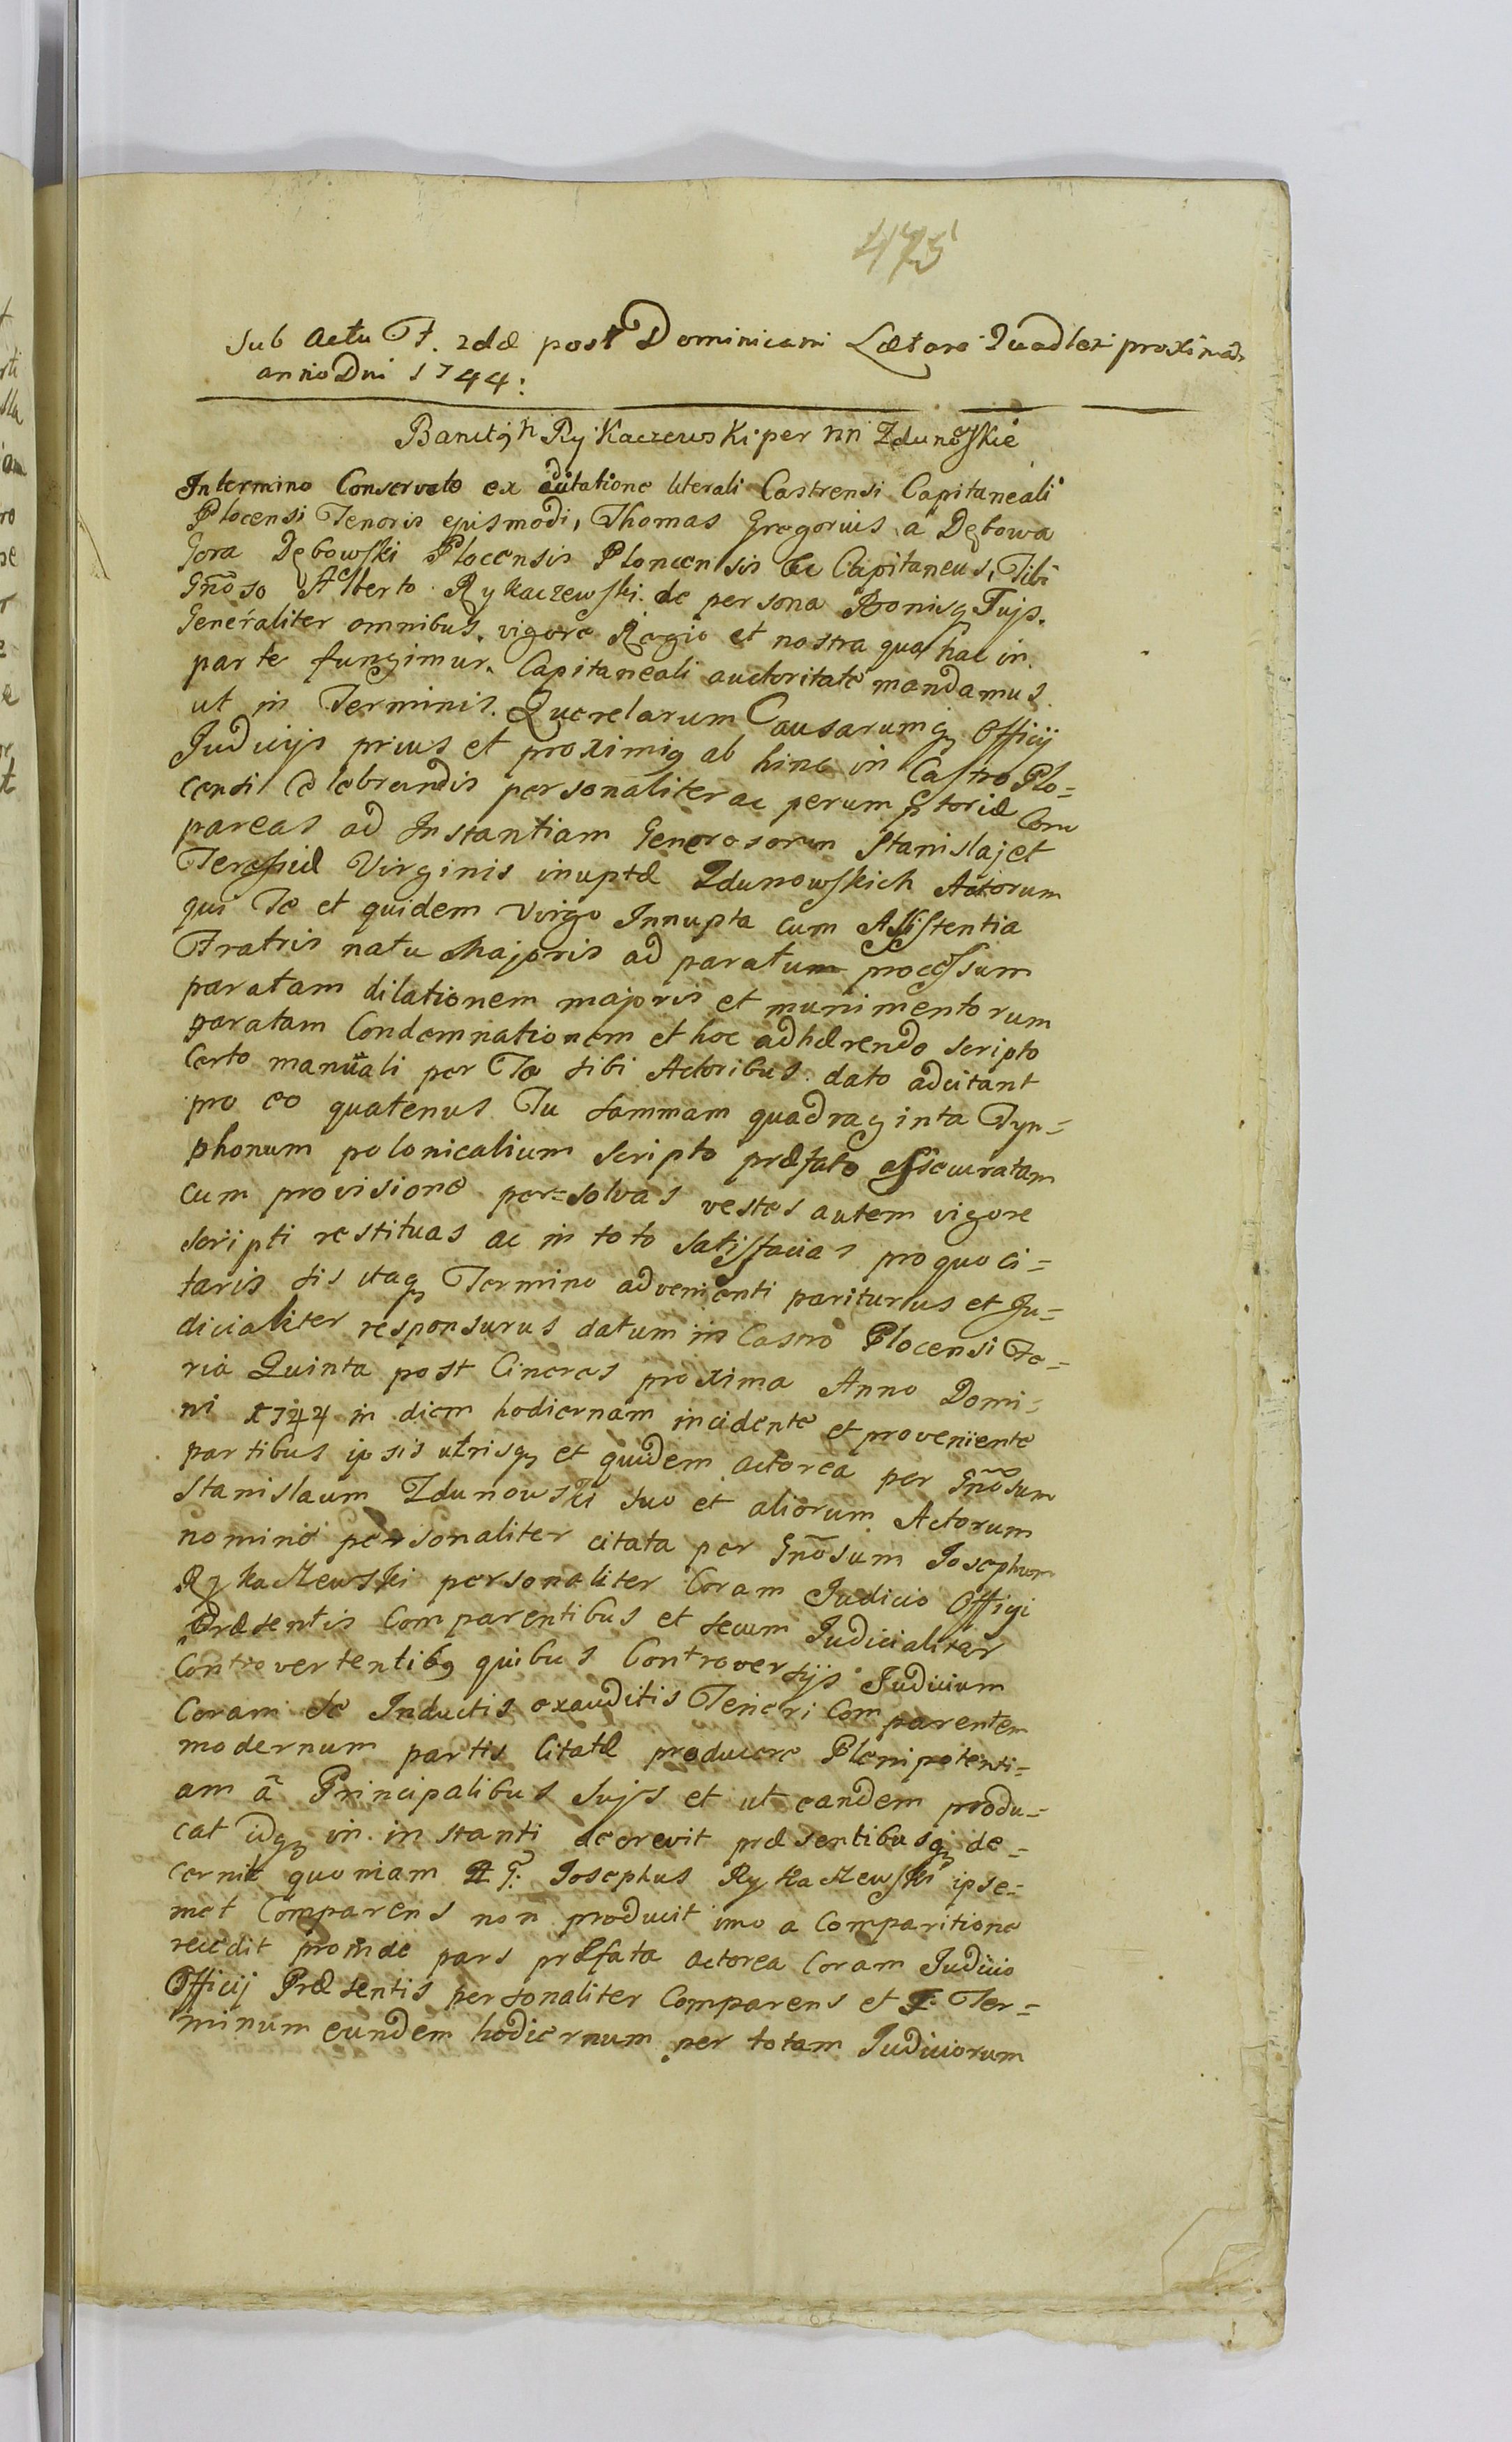 475
Sub Actu F. 2dæ post Dominicam Lætare Quadlex proximæ
anno Dni 1744:
Rykaczewski per nn Zdunoskie
In termino Conservato ex citatione literali Castrensi Capitaneali
Plocensi Tenoris ejusmodi, Thomas Gregorius a Dębowa
Gora Dębowski Plocensis Ploncensis &c Capitaneus, Tibi
Gñoso Alberto Rykaczewski de persona Bonisq Tujs
Generaliter omnibus, vigore Regia et nostra qua hac in
parte fungimur. Capitaneali auctoritate mandamus
ut in Terminis Querelarum Causarumq Officij
Judicijs prius et proximiq ab hinc in Castro Plo=
censi Celebrandis personaliter ac perumptoriæ Com
pareas ad Instantiam Generosorum Stanislaj et
Teressiæ Virginis inuptæ Zdunowskich Actorum
qui Te et quidem Virgo Innupta cum Assistentia
Fratris natu Majoris ad paratum processum
paratam dilationem majoris et munimentorum
paratam Condemnationem et hoc adhærendo scripto
Certo manuali per Te sibi Actoribus dato adcitant
pro eo quatenus Tu sammam quadraginta Tyn=
phonum polonicalium scripto præfato assecuratam
cum provisione per=solvas vestes autem vigore
scripti restituas ac in toto satisfacias pro quo ci=
taris sis itaq Termino advenienti pariturus et Ju=
dicialiter responsurus datum in Castro Plocensi Fe=
ria Quinta post Cineres proxima Anno Domi=
ni 1744 in diem hodiernam incidente et proveniente
partibus ipsis utrisq et quidem actorea per Gñosum
Stanislaum Zdunowski suo et aliorum Actorum
nomine personaliter citata per Gñosum Josephum
Rykaczewski personaliter Coram Judicio Officij
Præsentis Comparentibus et secum Judicialiter
Controvertentibq quibus Controversijs Judicium
Coram se Inductis exauditis Teneri Comparentem
modernum partis Citatæ producere Plenipotenti=
am à Principalibus Sujs et ut eandem produ=
cat idq in instanti decrevit præsentibusq de=
cernit quoniam G. Josephus Rykaczewski ipse=
met Comparens non producit imo a Comparitione
recedit proinde pars præfata actorea Coram Judicio
Officij Præsentis personaliter Comparens et Ter=
minum eundem hodiernum per totam Judiciorum